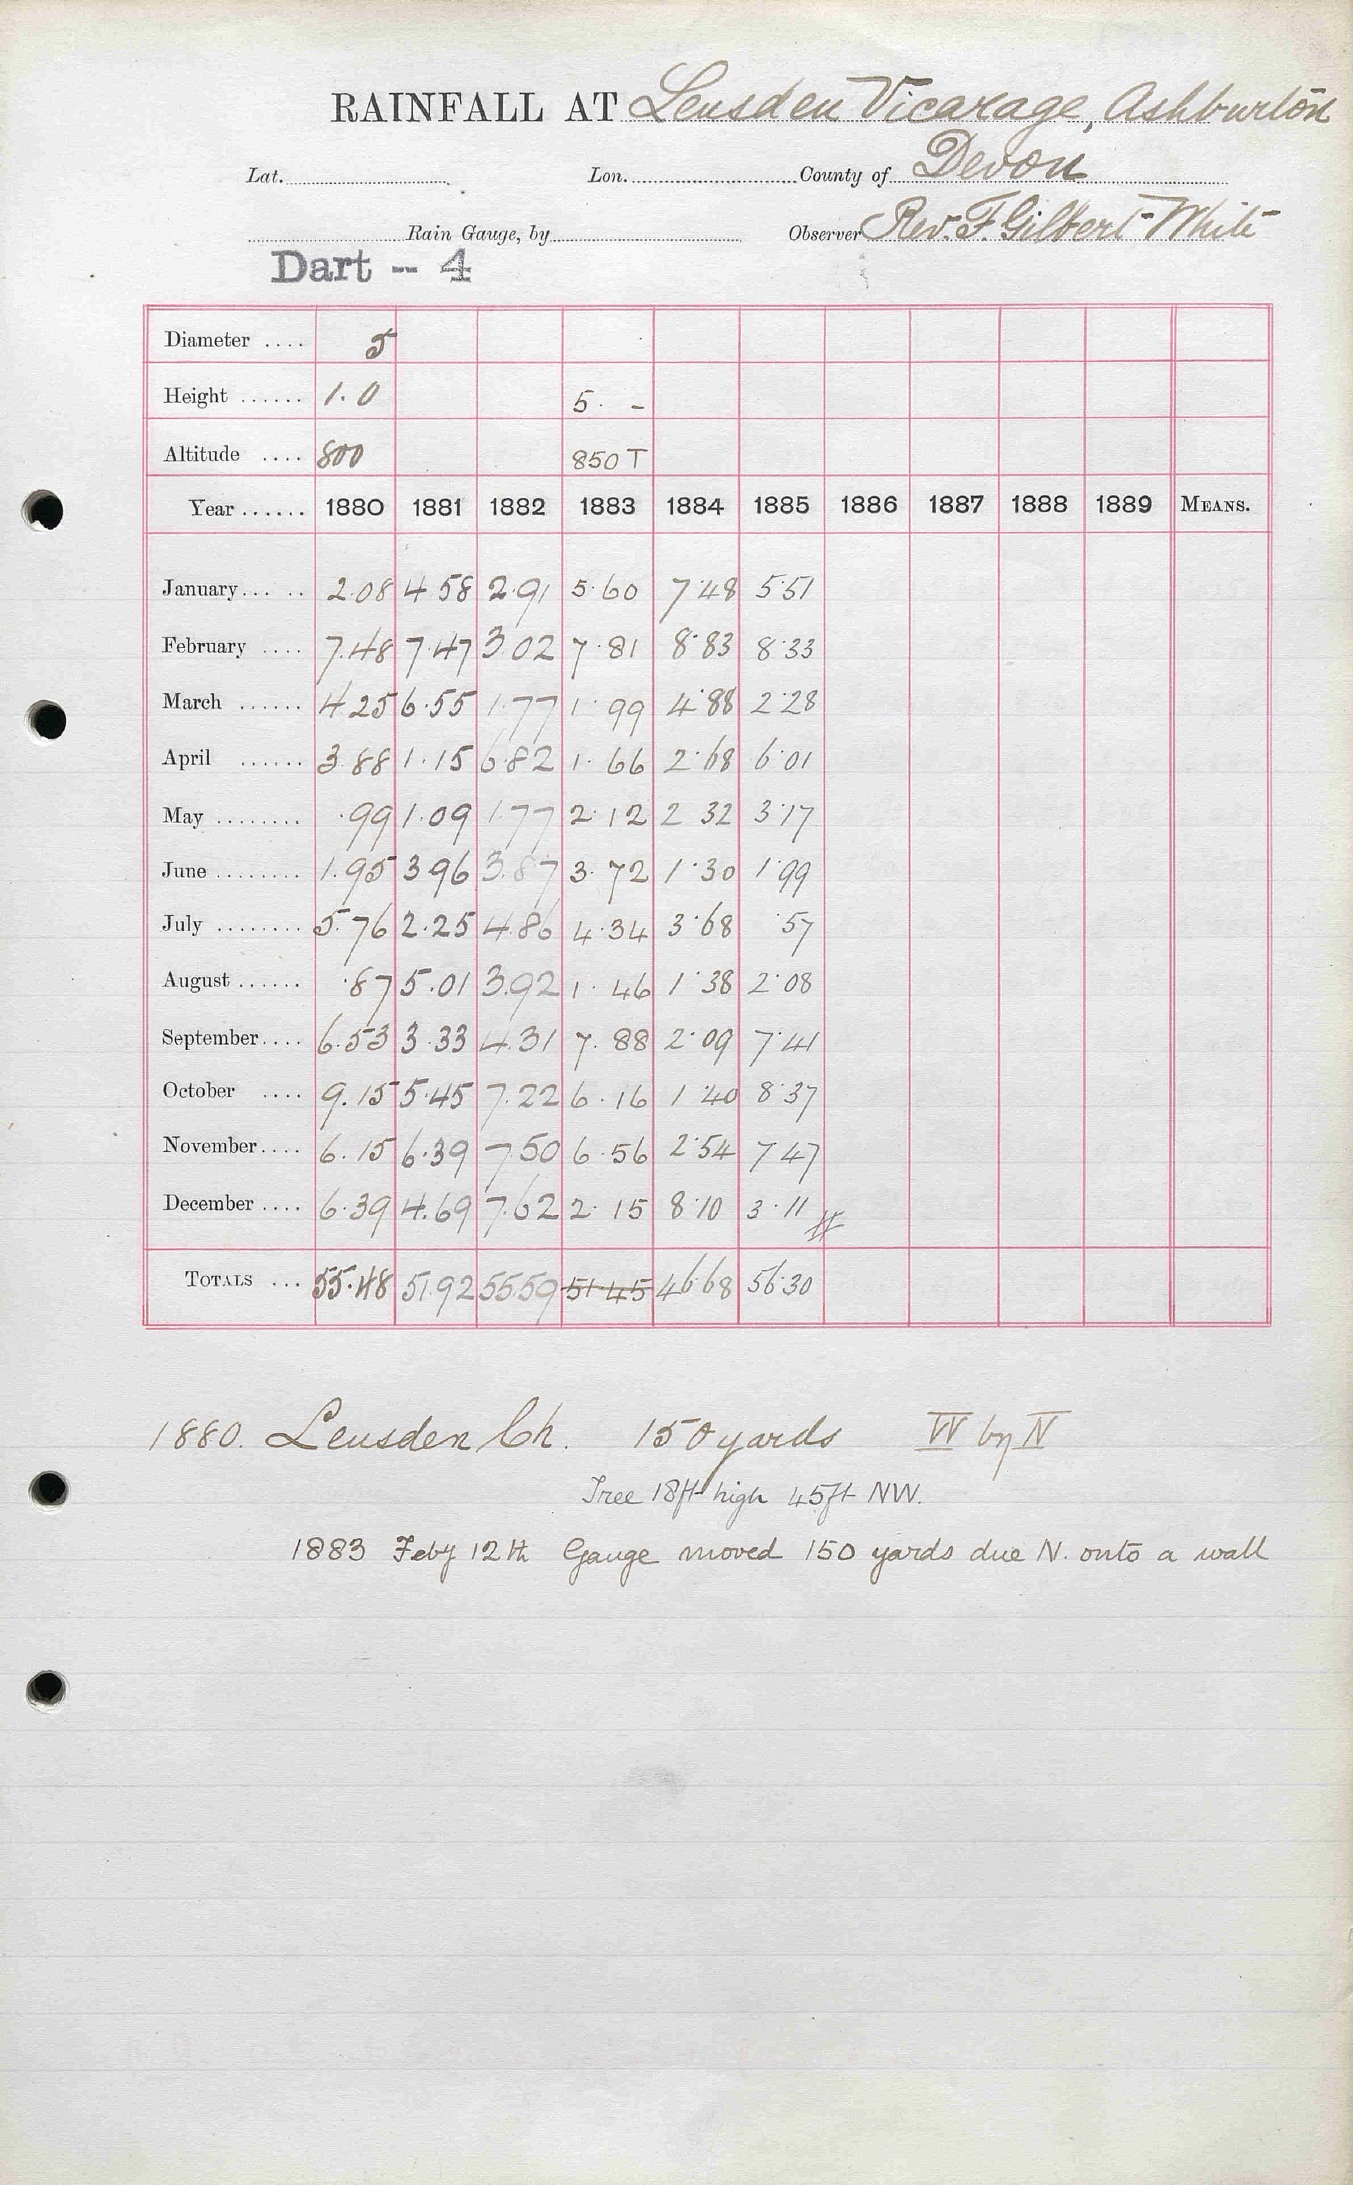 RAINFALL AT Leusden Vicarage, Ashburton
Lat. Lon. County of Devon
Rain Gauge, by Observer Rev. F. Gilbert-White
Dart -- 4
Diameter .... 5
Height ...... 1.0 5. -
Altitude .... 800 850 T
Year ...... 1880 1881 1882 1883 1884 1885 1886 1887 1888 1889 MEANS.
January... .. 2.08 4.58 2.91 5.60 7.48 5.51
February .... 7.48 7.47 3.02 7.81 8.83 8.33
March ...... 4.25 6.55 1.77 1.99 4.88 2.28
April ...... 3.88 1.15 6.82 1.66 2.68 6.01
May ........ .99 1.09 1.77 2.12 2 32 3.17
June ........ 1.95 3 96 3.87 3.72 1.30 1.99
July ........ 5.76 2.25 4.86 4.34 3.68 .57
August ...... .87 5.01 3.92 1.46 1.38 2.08
September .... 6.53 3.33 4.31 7.88 2.09 7.41
October .... 9.15 5.45 7.22 6.16 1.40 8.37
November .... 6.15 6.39 7.50 6.56 2.54 7.47
December .... 6.39 4.69 7.62 2.15 8.10 3.11
TOTALS ... 55.48 51.92 55.59 51.45 46.68 56.30
1880. Leusden Ch. 150 yards W by N
Tree 18ft high 45ft NW.
1883 Feby 12th Gauge moved 150 yards due N. onto a wall